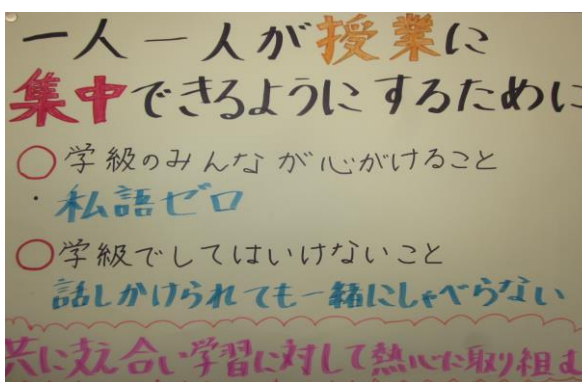 一人一人が授業に
集中できるようにするために
○学級のみんなが心がけること
・私語ゼロ
○学級でしてはいけないこと
話しかけられても一緒にしゃべらない
共に支え合い学習に対して熱心に取り組む